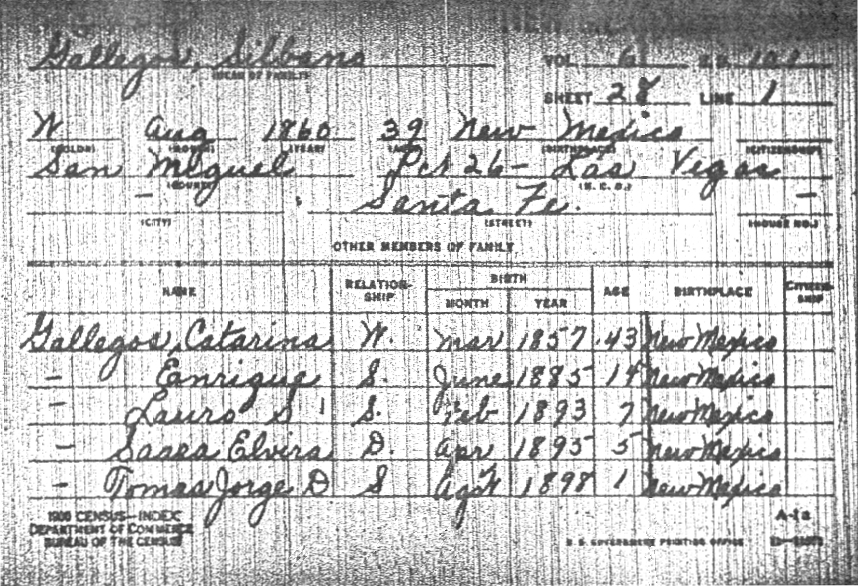 Gallegos, Silbano VOL. 6 E.D. 101
(HEAD OF FAMILY)
SHEET 28 LINE 1
W Aug 1860 39 New Mexico
(COLOR) (MONTH) (YEAR) (AGE) (BIRTHPLACE) (CITIZENSHIP)
San Meguel Pct 26 - Las Vegas
(COUNTY) (M. C. D.)
- Santa Fe. -
(CITY) (STREET) (HOUSE NO.)
OTHER MEMBERS OF FAMILY
NAME RELATION-SHIP BIRTH MONTH YEAR AGE BIRTHPLACE CITIZEN-SHIP
Gallegos, Catarina W. Mar 1857 43 New Mexico
- Eanrique S. June 1885 14 New Mexico
- Lauro S S. Feb 1893 7 New Mexico
- Elvira D. Apr 1895 5 New Mexico
- Tomas Jorge D S 1898 1 New Mexico
1900 CENSUS—INDEX A-1a
DEPARTMENT OF COMMERCE
BUREAU OF THE CENSUS U. S. GOVERNMENT PRINTING OFFICE